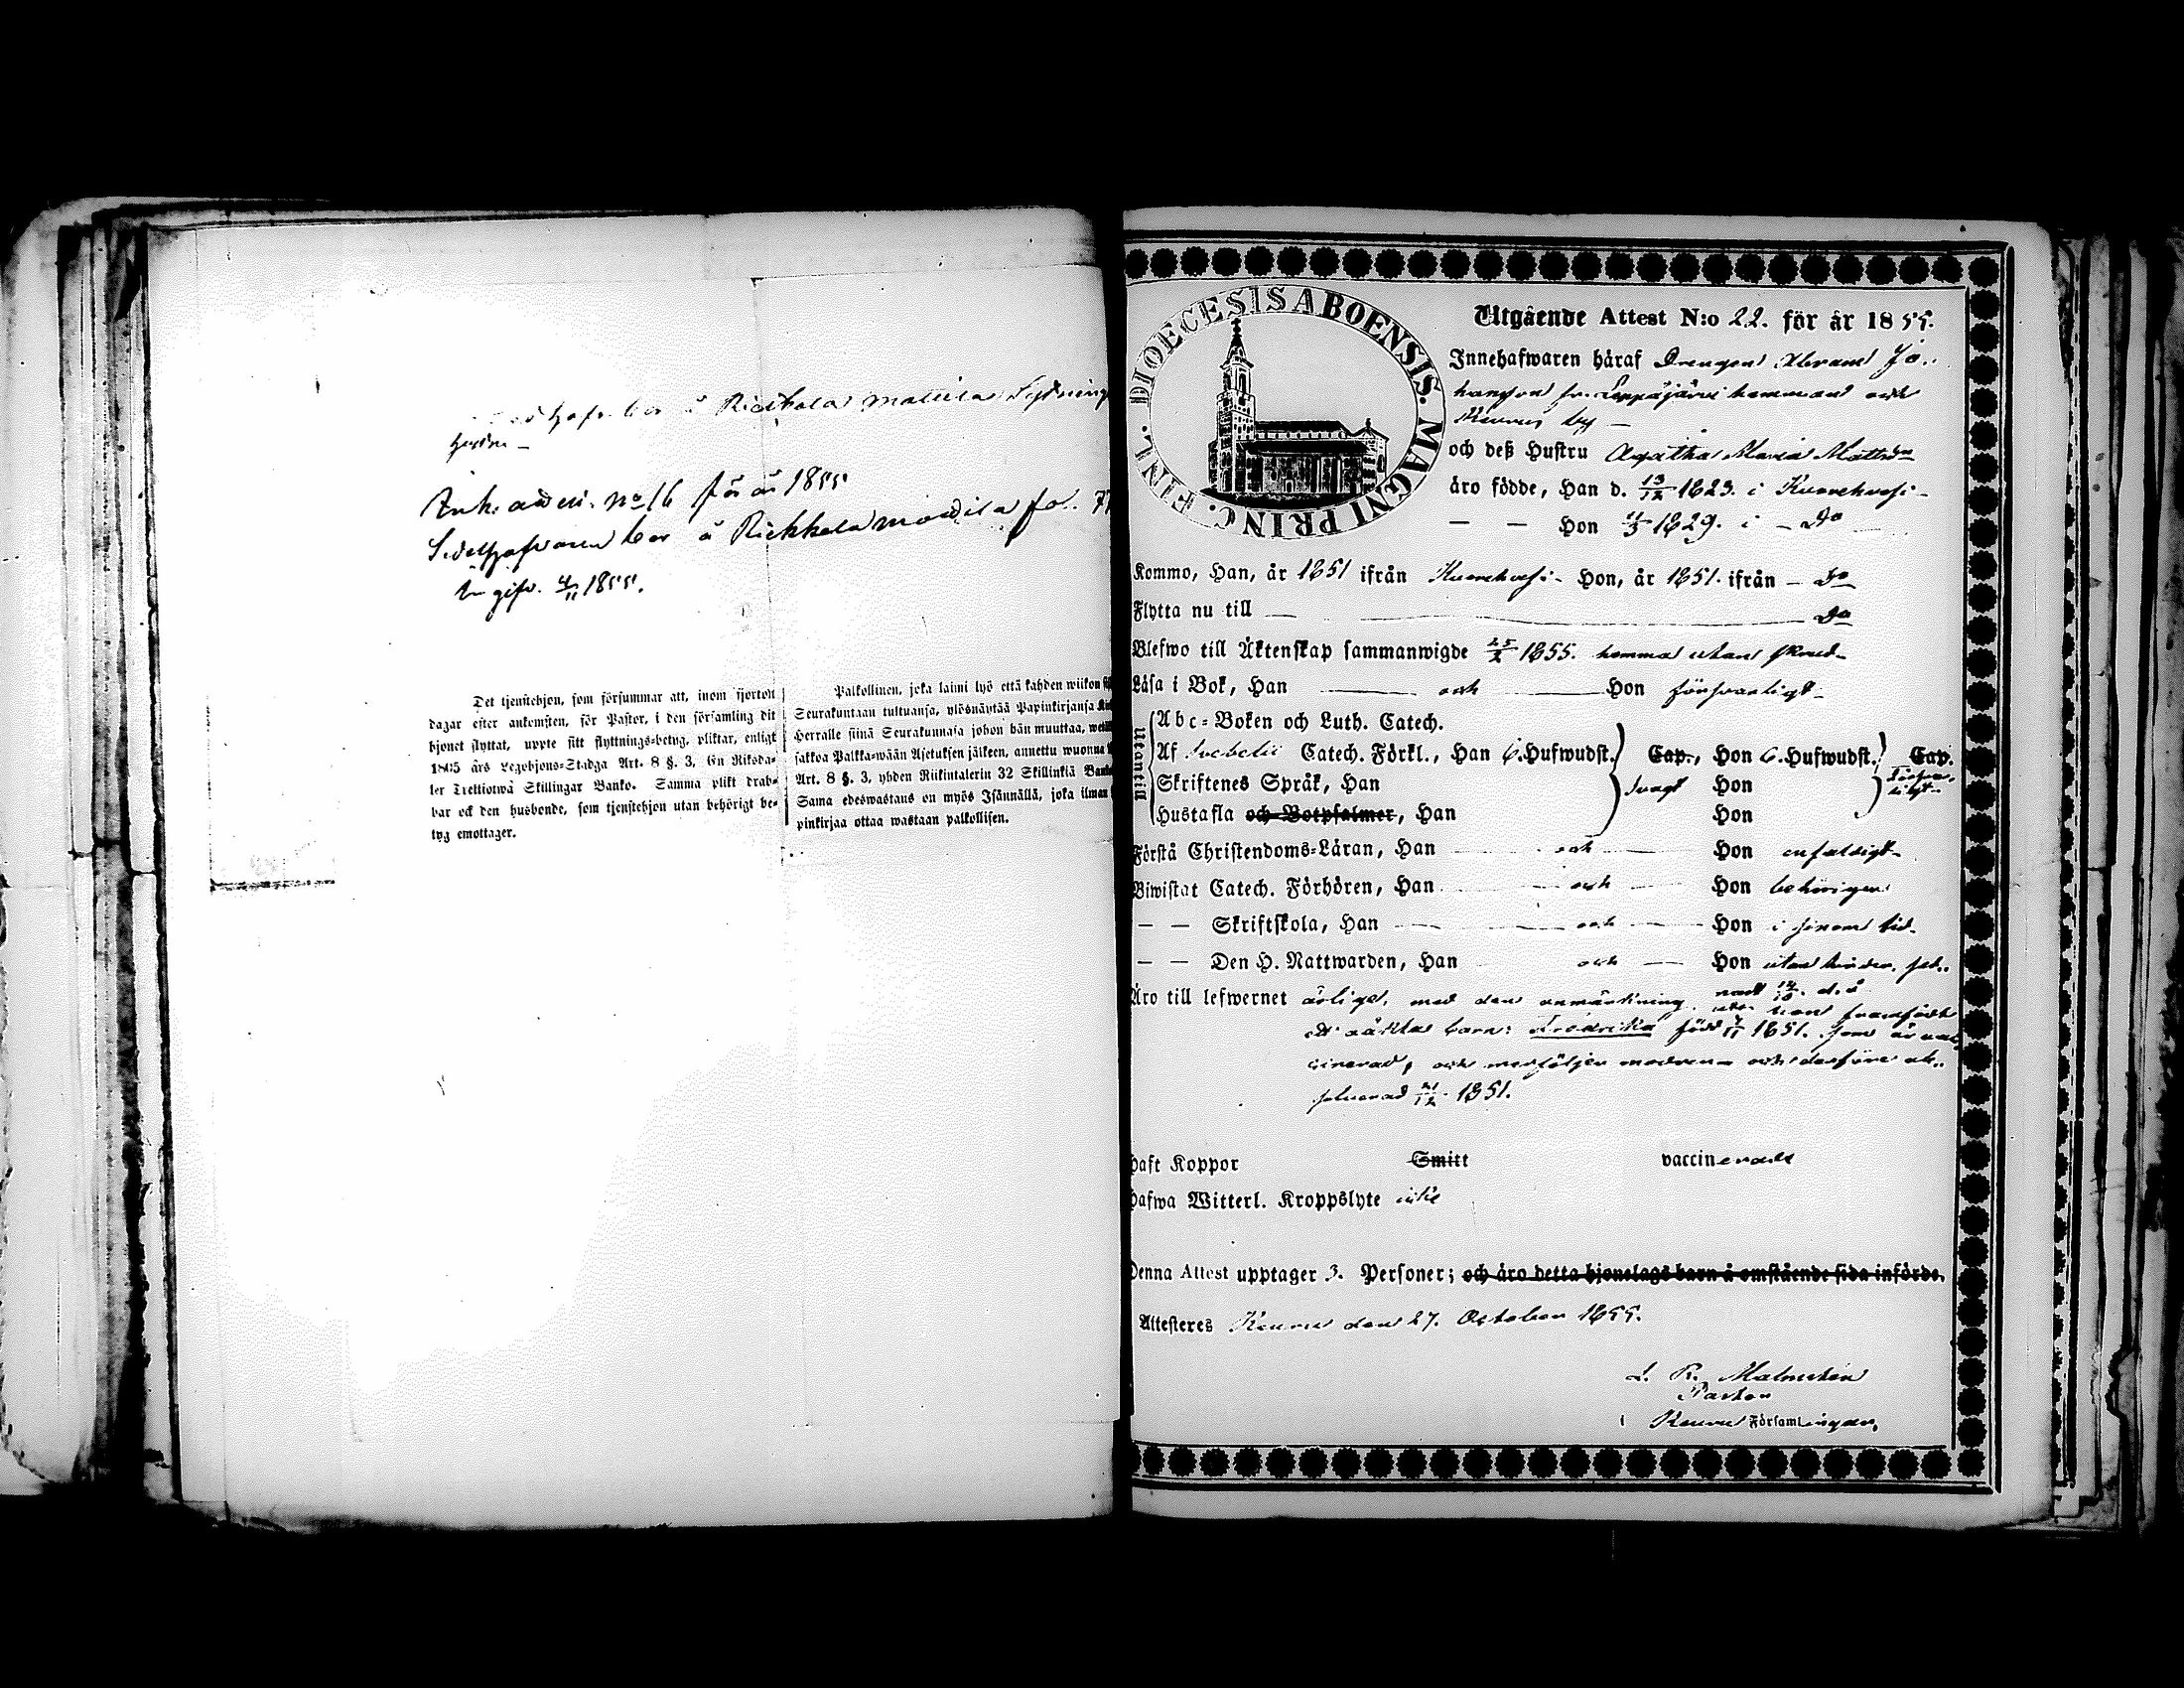 Riekkola mattila
Ank. attest. No 16 för år 1855
Sedelhafvaren bor å Riekkola mattila fol. 77
Angifv. 4/11 1855.
Det tjenstehjon, som försummar att, inom fjorton
dagar efter ankomsten, för Pastor, i den församling dit
hjonet flyttat, uppte sitt flyttnings-betyg, pliktar, enligt
1805 års Legohjons-Stadga Art. 8 §. 3, En Riksda-
ler Trettiotwå Skillingar Banko. Samma plikt drab-
bar ock den husbonde, som tjenstehjon utan behörigt be-
tyg emottager.
Palkollinen, joka laimi lyö että kahden wiikon
Seurakuntaan tultuansa, ylösnäytää Papinkirjansa
Herralle siinä Seurakunnasa johon hän muuttaa,
sakkoa Palkka-wään Asetuksen jälkeen, annettu wuonna
Art. 8 §. 3, yhden Riikintalerin 32 Skillinkiä
Sama edeswastaus on myös Isännällä, joka ilman
pinkirjaa ottaa wastaan palkollisen.
DIOECESIS ABOENSIS. MAGNI PRINC. FINL.
Utgående Attest N:o 22. för år 1855.
Innehafwaren häraf Drengen Abram Jo-
hansson fr. Leppäjärvi hemman och
Keuru by —
och deß Hustru Agatha Maria Mattsdr
äro födde, Han d. 13/12 1823. i Kuorehvesi
— — Hon 11/3 1829. i — Do
Kommo, Han, år 1851 ifrån Kuorehvesi Hon, år 1851. ifrån — Do
Flytta nu till — Do
Blefwo till Äktenskap sammanwigde 25/2 1855. hemma utan skrud
Läsa i Bok, Han — och — Hon försvarligt
Utantill
Abc-Boken och Luth. Catech.
Af Svebelii Catech. Förkl., Han 6. Hufwudst. Cap., Hon 6. Hufwudst. Cap.
Skriftenes Språk, Han svagt Hon försvar-
ligt
Hustafla och Botpsalmer, Han Hon
Förstå Christendoms-Läran, Han — och — Hon enfaldigt
Biwistat Catech. Förhören, Han — och — Hon behörigen
— — Skriftskola, Han — och — Hon i sinom tid
— — Den H. Nattwarden, Han och — Hon utan hinder,
Äro till lefwernet ärliga, med den anmärkning, hon framfödt
ett oäkta barn: Fredrika född 1851. som är vac-
cinerad, och medföljer modren och derföre ab-
solverad 21/12 1851.
Haft Koppor Smitt vaccinerade
Hafwa Witterl. Kroppslyte icke
Denna Attest upptager 3. Personer; och äro detta hjonelags barn å omstående sida införde.
Attesteres Keuru den 27. October 1855.
L. R. Malmstén
Pastor
i Keuru Församlingen,